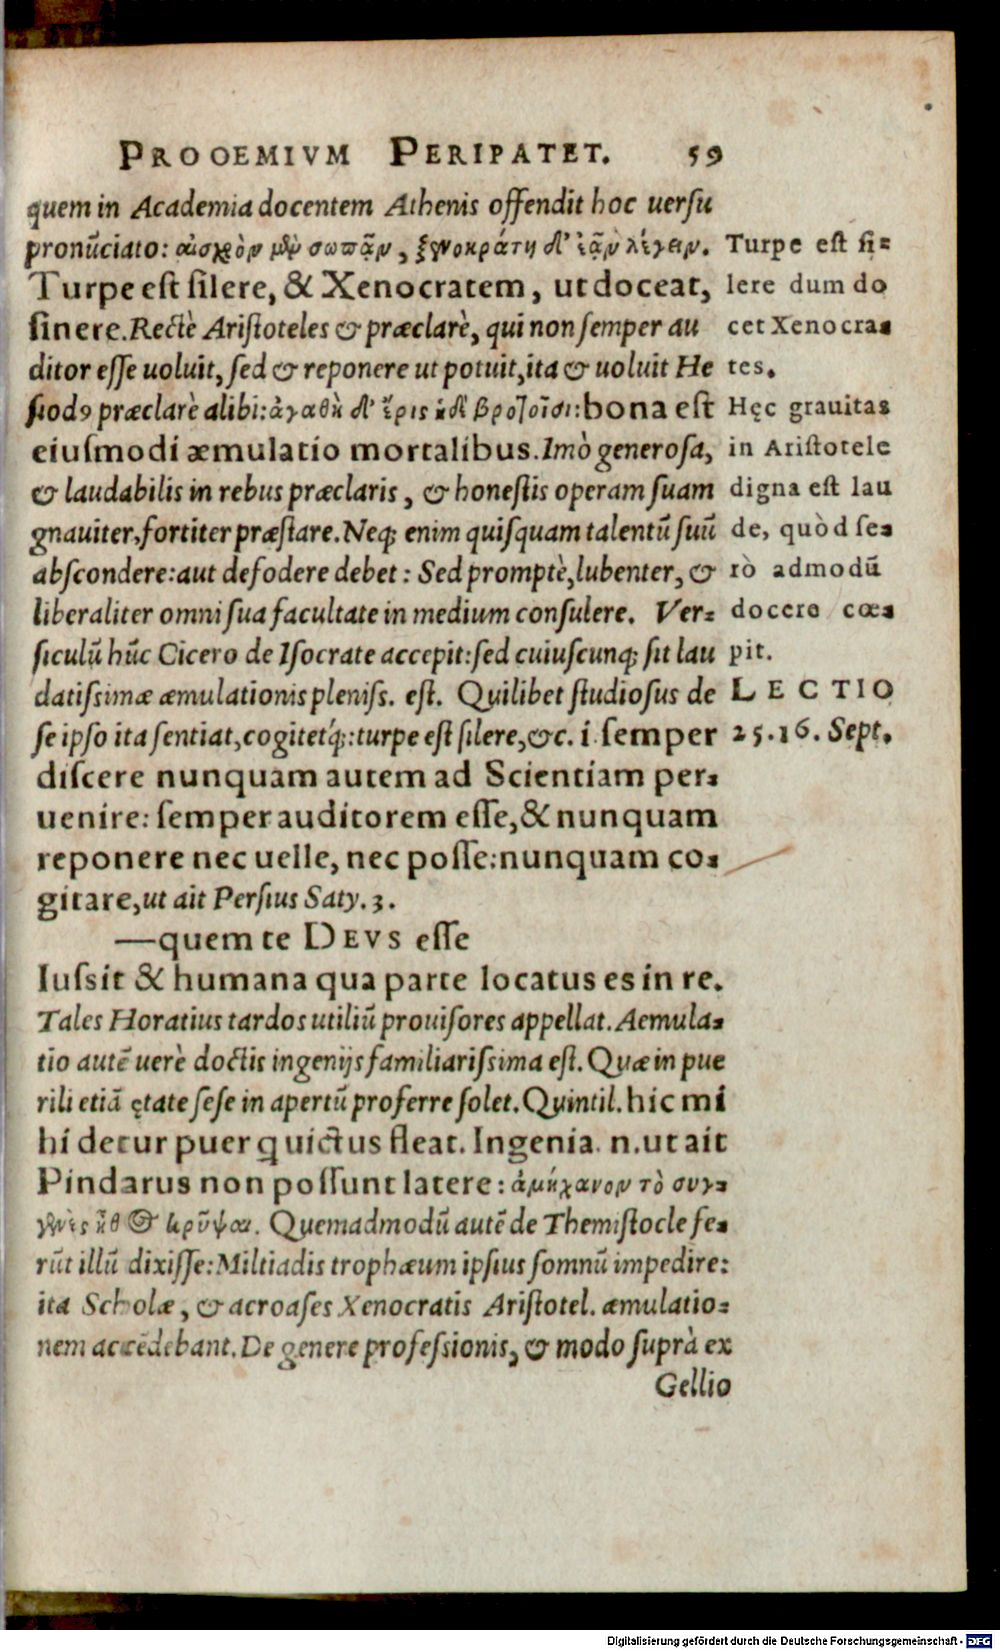 PROOEMIVM PERIPATET. 59
quem in Academia docentem Athenis offendit hoc uersu
pronũciato: αἰσχρὸν μὲν σωπᾶν, ξενοκράτη δ' ἐᾶν λέγειν.
Turpe est silere, & Xenocratem, ut doceat,
sinere. Rectè Aristoteles & præclarè, qui non semper au
ditor esse uoluit, sed & reponere ut potuit, ita & uoluit He
siodꝰ præclarè alibi: ἀγαθὴ δ' ἔρις ἥδε βροτοῖσι: bona est
eiusmodi æmulatio mortalibus. Imò generosa,
& laudabilis in rebus præclaris, & honestis operam suam
gnauiter, fortiter præstare. Neq; enim quisquam talentũ suũ
abscondere: aut defodere debet: Sed promptè, lubenter, &
liberaliter omni sua facultate in medium consulere. Ver=
siculũ hũc Cicero de Isocrate accepit: sed cuiuscunq; sit lau
datissimæ æmulationis pleniss. est. Quilibet studiosus de
se ipso ita sentiat, cogitetq́;: turpe est silere, &c. i. semper
discere nunquam autem ad Scientiam per=
uenire: semper auditorem esse, & nunquam
reponere nec uelle, nec posse: nunquam co=
gitare, ut ait Persius Saty. 3.
—quem te DEVS esse
Iussit & humana qua parte locatus es in re.
Tales Horatius tardos utiliũ prouisores appellat. Aemula=
tio autẽ uerè doctis ingenijs familiarissima est. Quæ in pue
rili etiã ętate sese in apertũ proferre solet. Quintil. hic mi
hi detur puer q uictus fleat. Ingenia .n. ut ait
Pindarus non possunt latere: ἀμήχανον τὸ συγ=
γενὲς ἦθος κρῦψαι. Quemadmodũ autẽ de Themistocle fe=
rũt illũ dixisse: Miltiadis trophæum ipsius somnũ impedire:
ita Scholæ, & acroases Xenocratis Aristotel. æmulatio=
nem accẽdebant. De genere professionis, & modo suprà ex
Gellio
Turpe est si=
lere dum do
cet Xenocra=
tes.
Hęc grauitas
in Aristotele
digna est lau
de, quòd se=
rò admodũ
docere cœ=
pit.
LECTIO
25. 16. Sept.
Digitalisierung gefördert durch die Deutsche Forschungsgemeinschaft - DFG